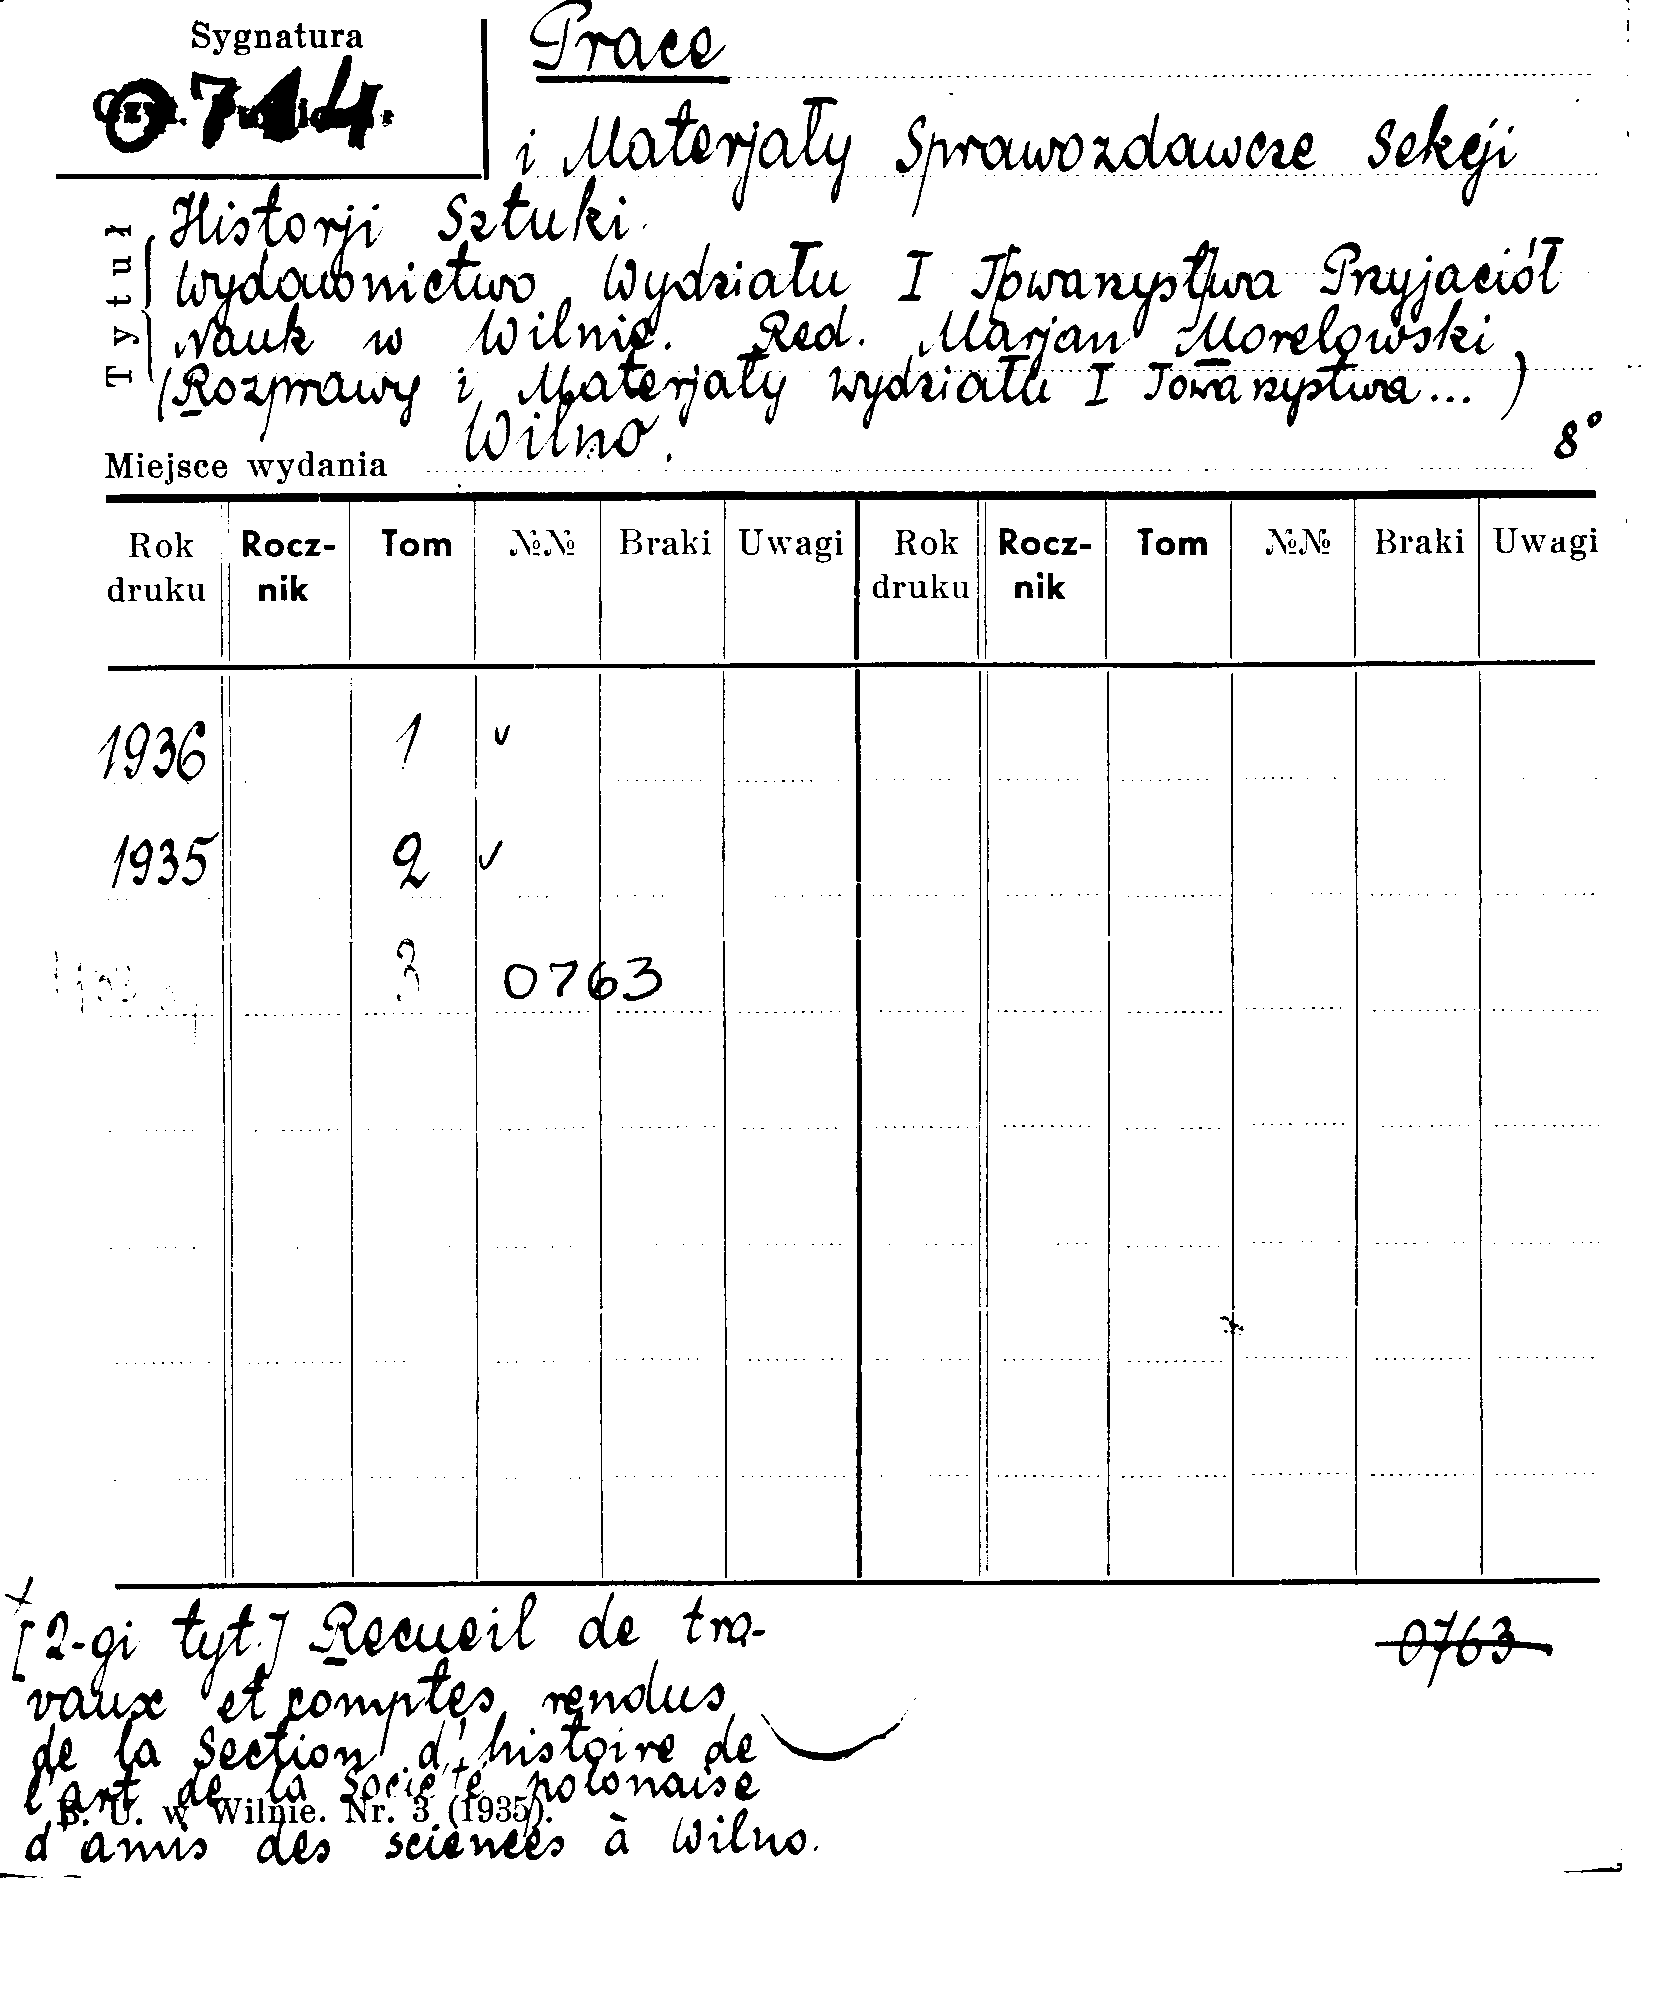 Sygnatura
0714
Prace
i Materjały Sprawozdawcze Sekcji
Historji Sztuki.
Wydawnictwo Wydziału I Towarzystwa Przyjaciół
Nauk w Wilnie. Red. Marjan Morelowski
(Rozprawy i Materjały Wydziału I Towarzystwa... )
Tytuł
Wilno.
8°
Miejsce wydania
Rok druku Rocz-nik Tom №№ Braki Uwagi Rok druku Rocz-nik Tom №№ Braki Uwagi
1936 1 v
1935 2 v
3 0763
[2-gi tyt.] Recueil de tra-
vaux et comptes rendus
de la Section d'histoire de
l'art de la Société polonaise
B. U. w Wilnie. Nr. 3 (1935).
d'amis des sciences à Wilno.
0763